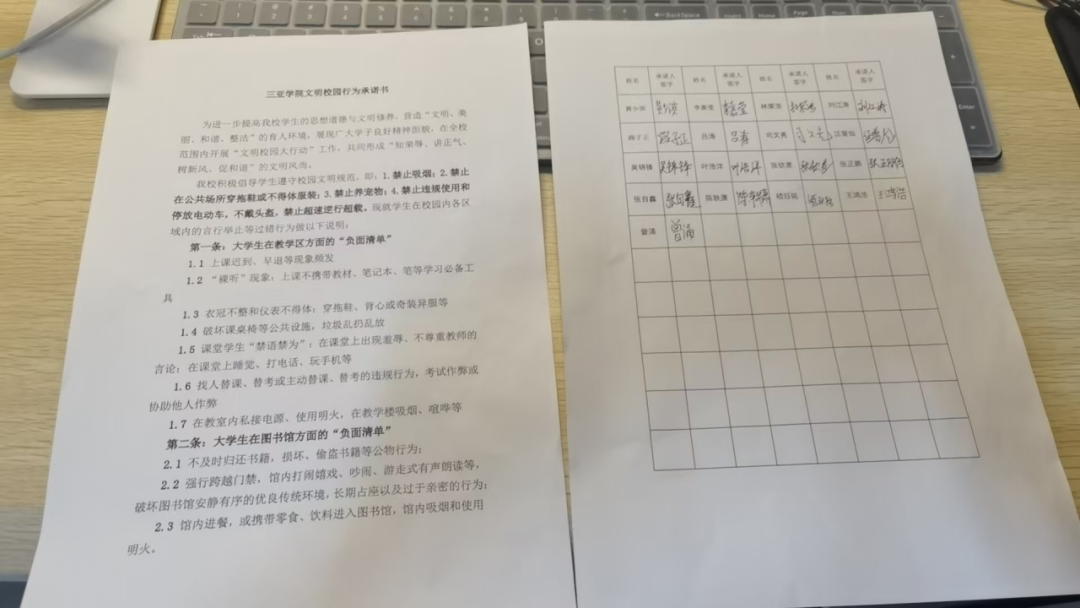 三亚学院文明校园行为承诺书
为进一步提高我校学生的思想道德与文明修养，营造“文明、美
丽、和谐、整洁”的育人环境，展现广大学子良好精神面貌，在全校
范围内开展“文明校园人行动”工作，共同形成“知荣辱、讲正气、
树新风、促和谐”的文明风尚。
我校积极倡导学生遵守校园文明规范，即：1.禁止吸烟；2.禁止
在公共场所穿拖鞋或不得体服装；3.禁止养宠物；4.禁止违规使用和
停放电动车，不戴头盔，禁止超速逆行超载。现就学生在校园内各区
域内的言行举止等过错行为做以下说明：
第一条：大学生在教学区方面的“负面清单”
1.1 上课迟到、早退等现象频发
1.2 “裸听”现象：上课不携带教材、笔记本、笔等学习必备工
具
1.3 衣冠不整和仪表不得体：穿拖鞋、背心或奇装异服等
1.4 破坏课桌椅等公共设施，垃圾乱扔乱放
1.5 课堂学生“禁语禁为”：在课堂上出现羞辱、不尊重教师的
言论；在课堂上睡觉、打电话、玩手机等
1.6 找人替课、替考或主动替课、替考的违规行为，考试作弊或
协助他人作弊
1.7 在教室内私接电源、使用明火，在教学楼吸烟、喧哗等
第二条：大学生在图书馆方面的“负面清单”
2.1 不及时归还书籍，损坏、偷盗书籍等公物行为；
2.2 强行跨越门禁，馆内打闹嬉戏、吵闹、游走式有声朗读等，
破坏图书馆安静有序的优良传统环境，长期占座以及过于亲密的行为；
2.3 馆内进餐，或携带零食、饮料进入图书馆，馆内吸烟和使用
明火。
姓名 承诺人签字 姓名 承诺人签字 姓名 承诺人签字 姓名 承诺人签字
刘江涛
吕涛 吕涛 司文亮
吴锦锋 吴锦锋 叶浩洋 叶浩洋 张正鹏 张正鹏
张自鑫 张自鑫 陈秋潇 王鸿浩
曾涌 曾涌
BackSpace Insert Home Page